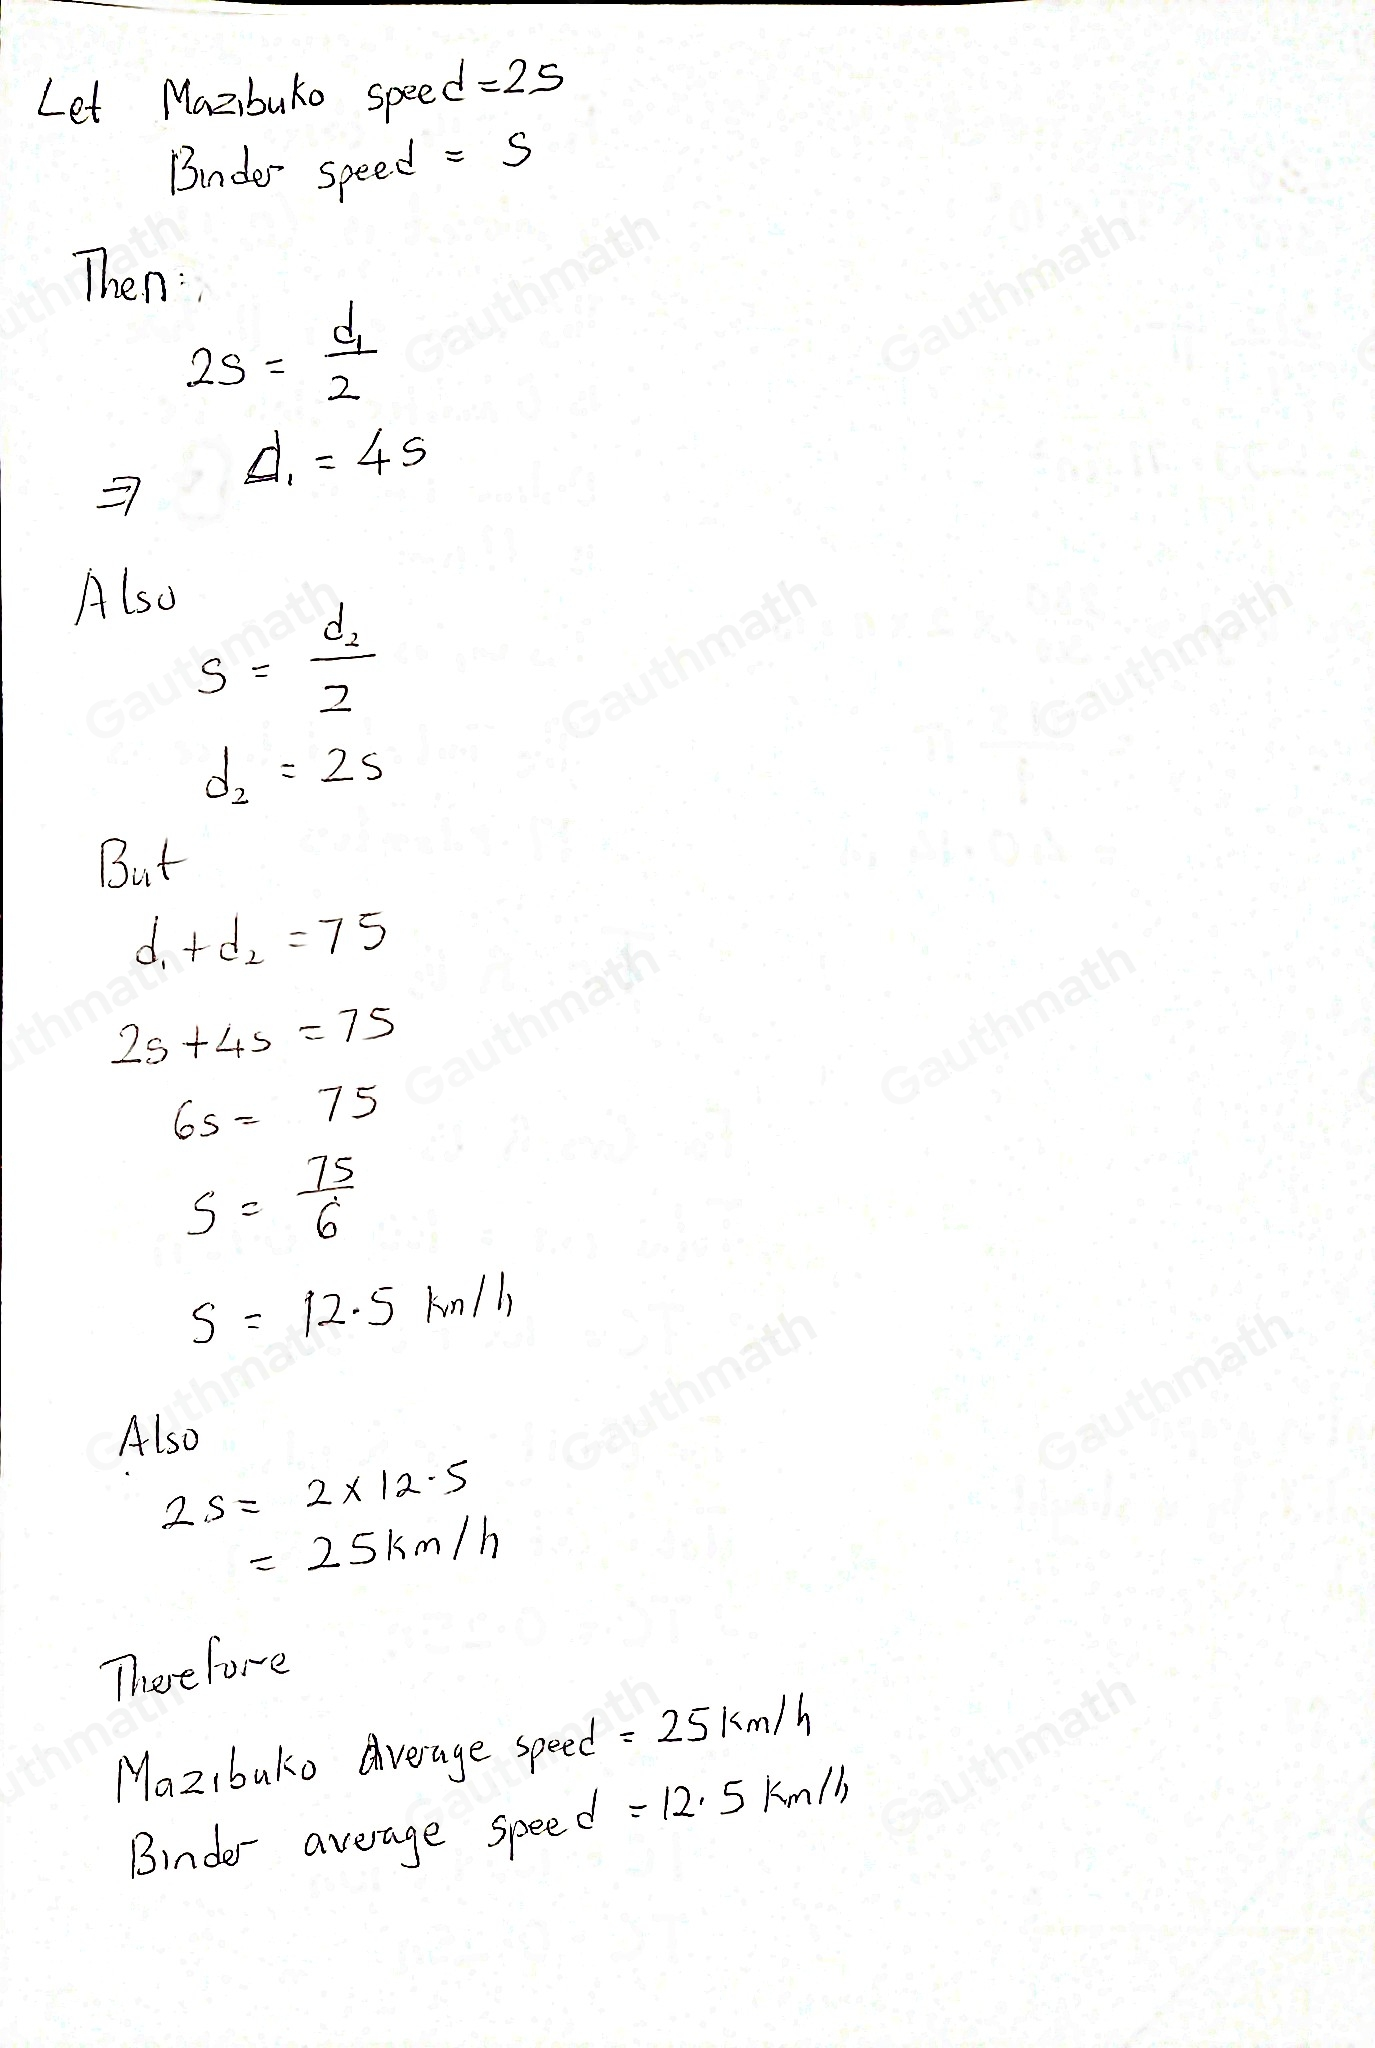 Let Mazibuko speed = 2s
Binder speed = s
Then:
2s = d₁/2
⇒ d₁ = 4s
Also
s = d₂/2
d₂ = 2s
But
d₁ + d₂ = 75
2s + 4s = 75
6s = 75
s = 75/6
s = 12.5 km/h
Also
2s = 2 × 12.5
= 25 km/h
Therefore
Mazibuko Average speed = 25 km/h
Binder average speed = 12.5 km/h
Gauthmath